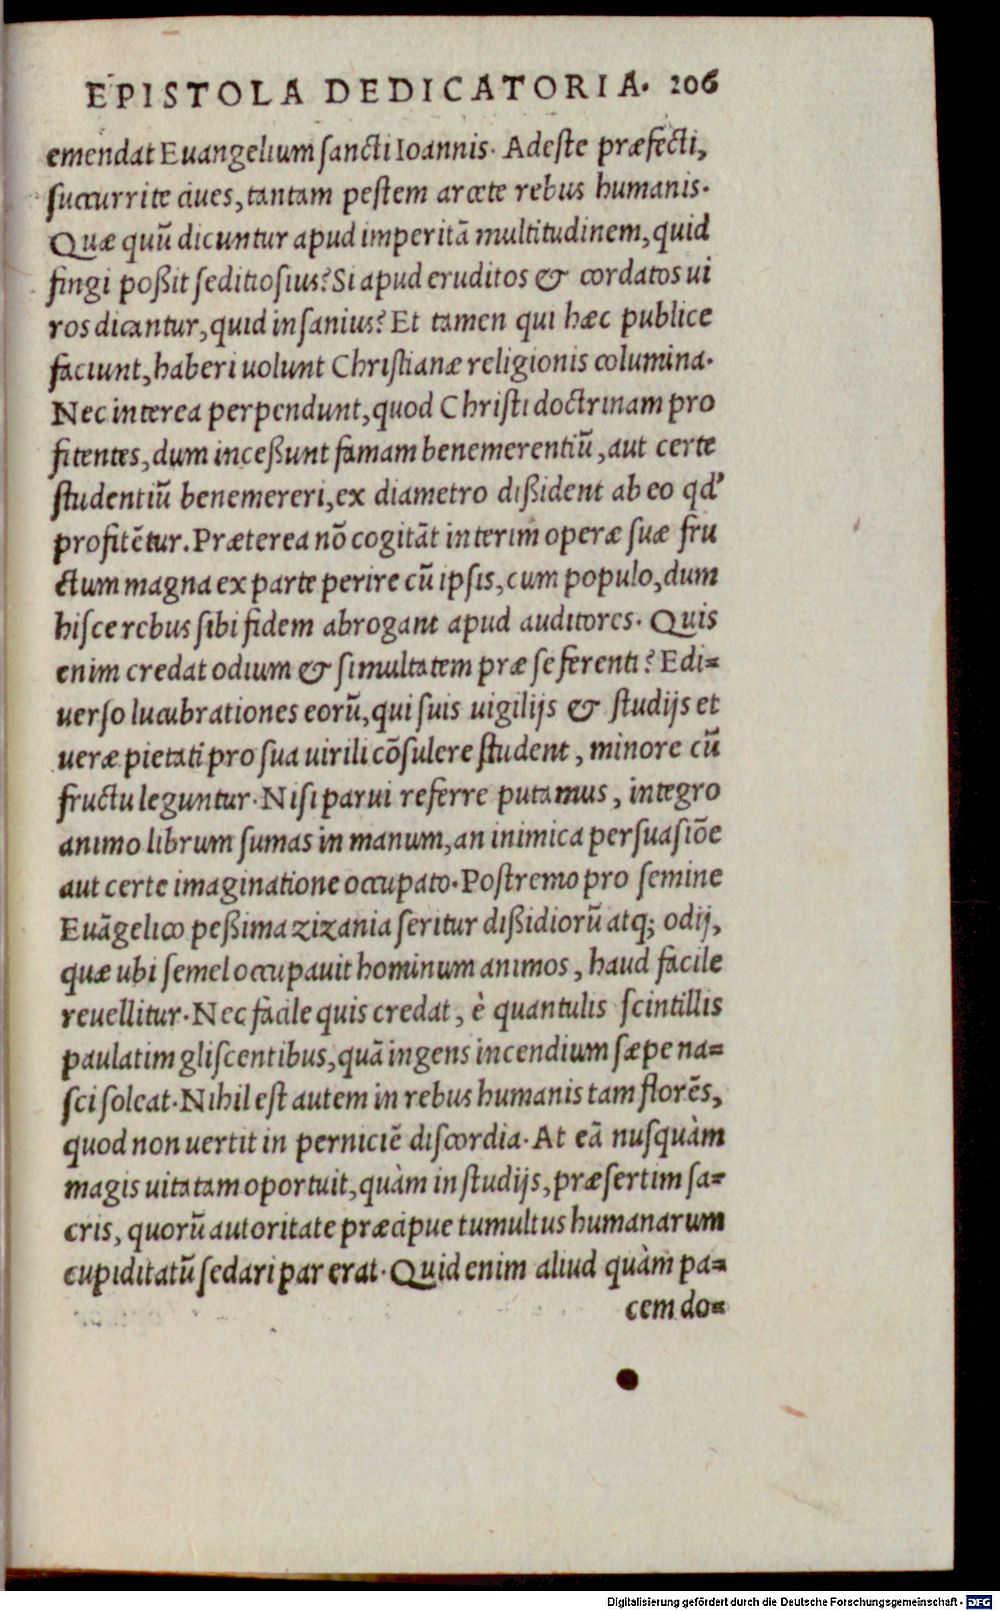 EPISTOLA DEDICATORIA. 206
emendat Euangelium ſancti Ioannis. Adeſte præfecti,
ſuccurrite ciues, tantam peſtem arcete rebus humanis.
Quæ quũ dicuntur apud imperitã multitudinem, quid
fingi poßit ſeditioſius? Si apud eruditos & cordatos ui
ros dicantur, quid inſanius? Et tamen qui hæc publice
faciunt, haberi uolunt Chriſtianæ religionis columina.
Nec interea perpendunt, quod Chriſti doctrinam pro
fitentes, dum inceßunt famam benemerentiũ, aut certe
ſtudentiũ benemereri, ex diametro dißident ab eo qd'
profitẽtur. Præterea nõ cogitãt interim operæ ſuæ fru
ctum magna ex parte perire cũ ipſis, cum populo, dum
hiſce rebus ſibi fidem abrogant apud auditores. Quis
enim credat odium & ſimultatem præ ſe ferenti? E di=
uerſo lucubrationes eorũ, qui ſuis uigilijs & ſtudijs et
ueræ pietati pro ſua uirili cõſulere ſtudent, minore cũ
fructu leguntur. Niſi parui referre putamus, integro
animo librum ſumas in manum, an inimica perſuaſiõe
aut certe imaginatione occupato. Poſtremo pro ſemine
Euãgelico peßima zizania ſeritur dißidiorũ atq; odij,
quæ ubi ſemel occupauit hominum animos, haud facile
reuellitur. Nec facile quis credat, è quantulis ſcintillis
paulatim gliſcentibus, quã ingens incendium ſæpe na=
ſci ſoleat. Nihil eſt autem in rebus humanis tam florẽs,
quod non uertit in perniciẽ diſcordia. At eã nuſquàm
magis uitatam oportuit, quàm in ſtudijs, præſertim ſa=
cris, quorũ autoritate præcipue tumultus humanarum
cupiditatũ ſedari par erat. Quid enim aliud quàm pa=
cem do=
Digitalisierung gefördert durch die Deutsche Forschungsgemeinschaft - DFG